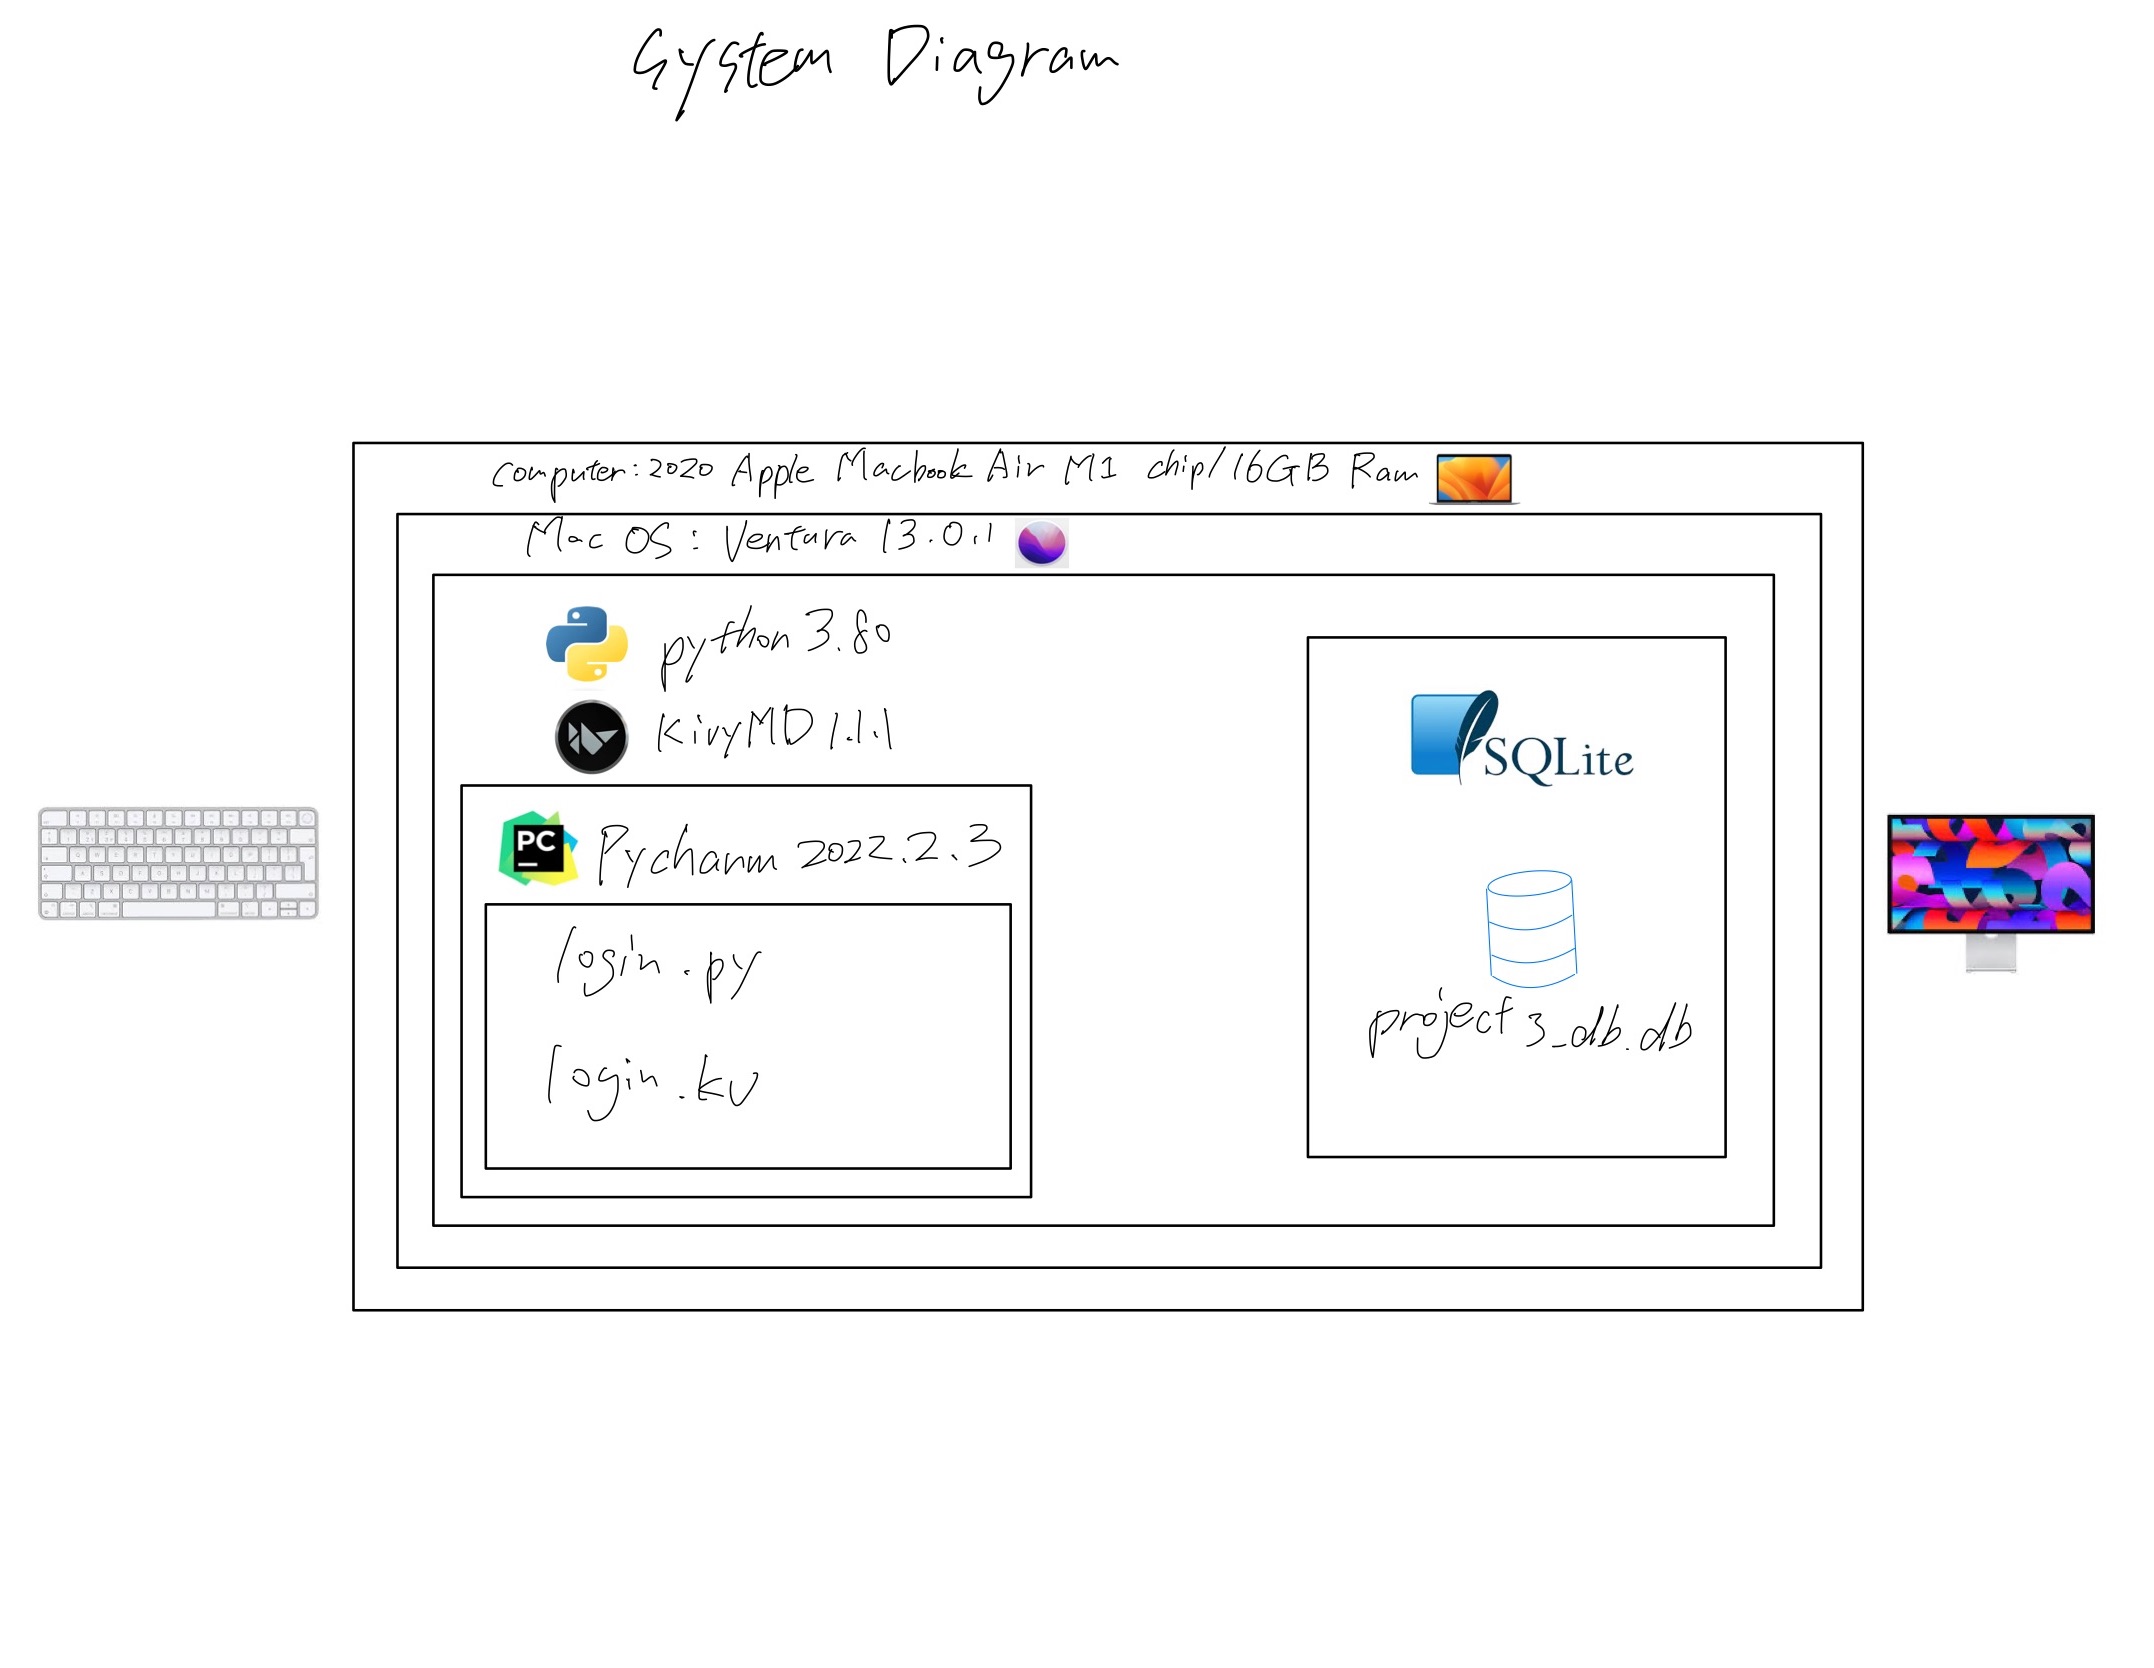 System Diagram
computer: 2020 Apple Macbook Air M1 chip/16GB Ram
Mac OS: Ventura 13.0.1
python 3.80
KivyMD 1.1.1
PC Pycharm 2022.2.3
login.py
login.kv
SQLite
project3_db.db